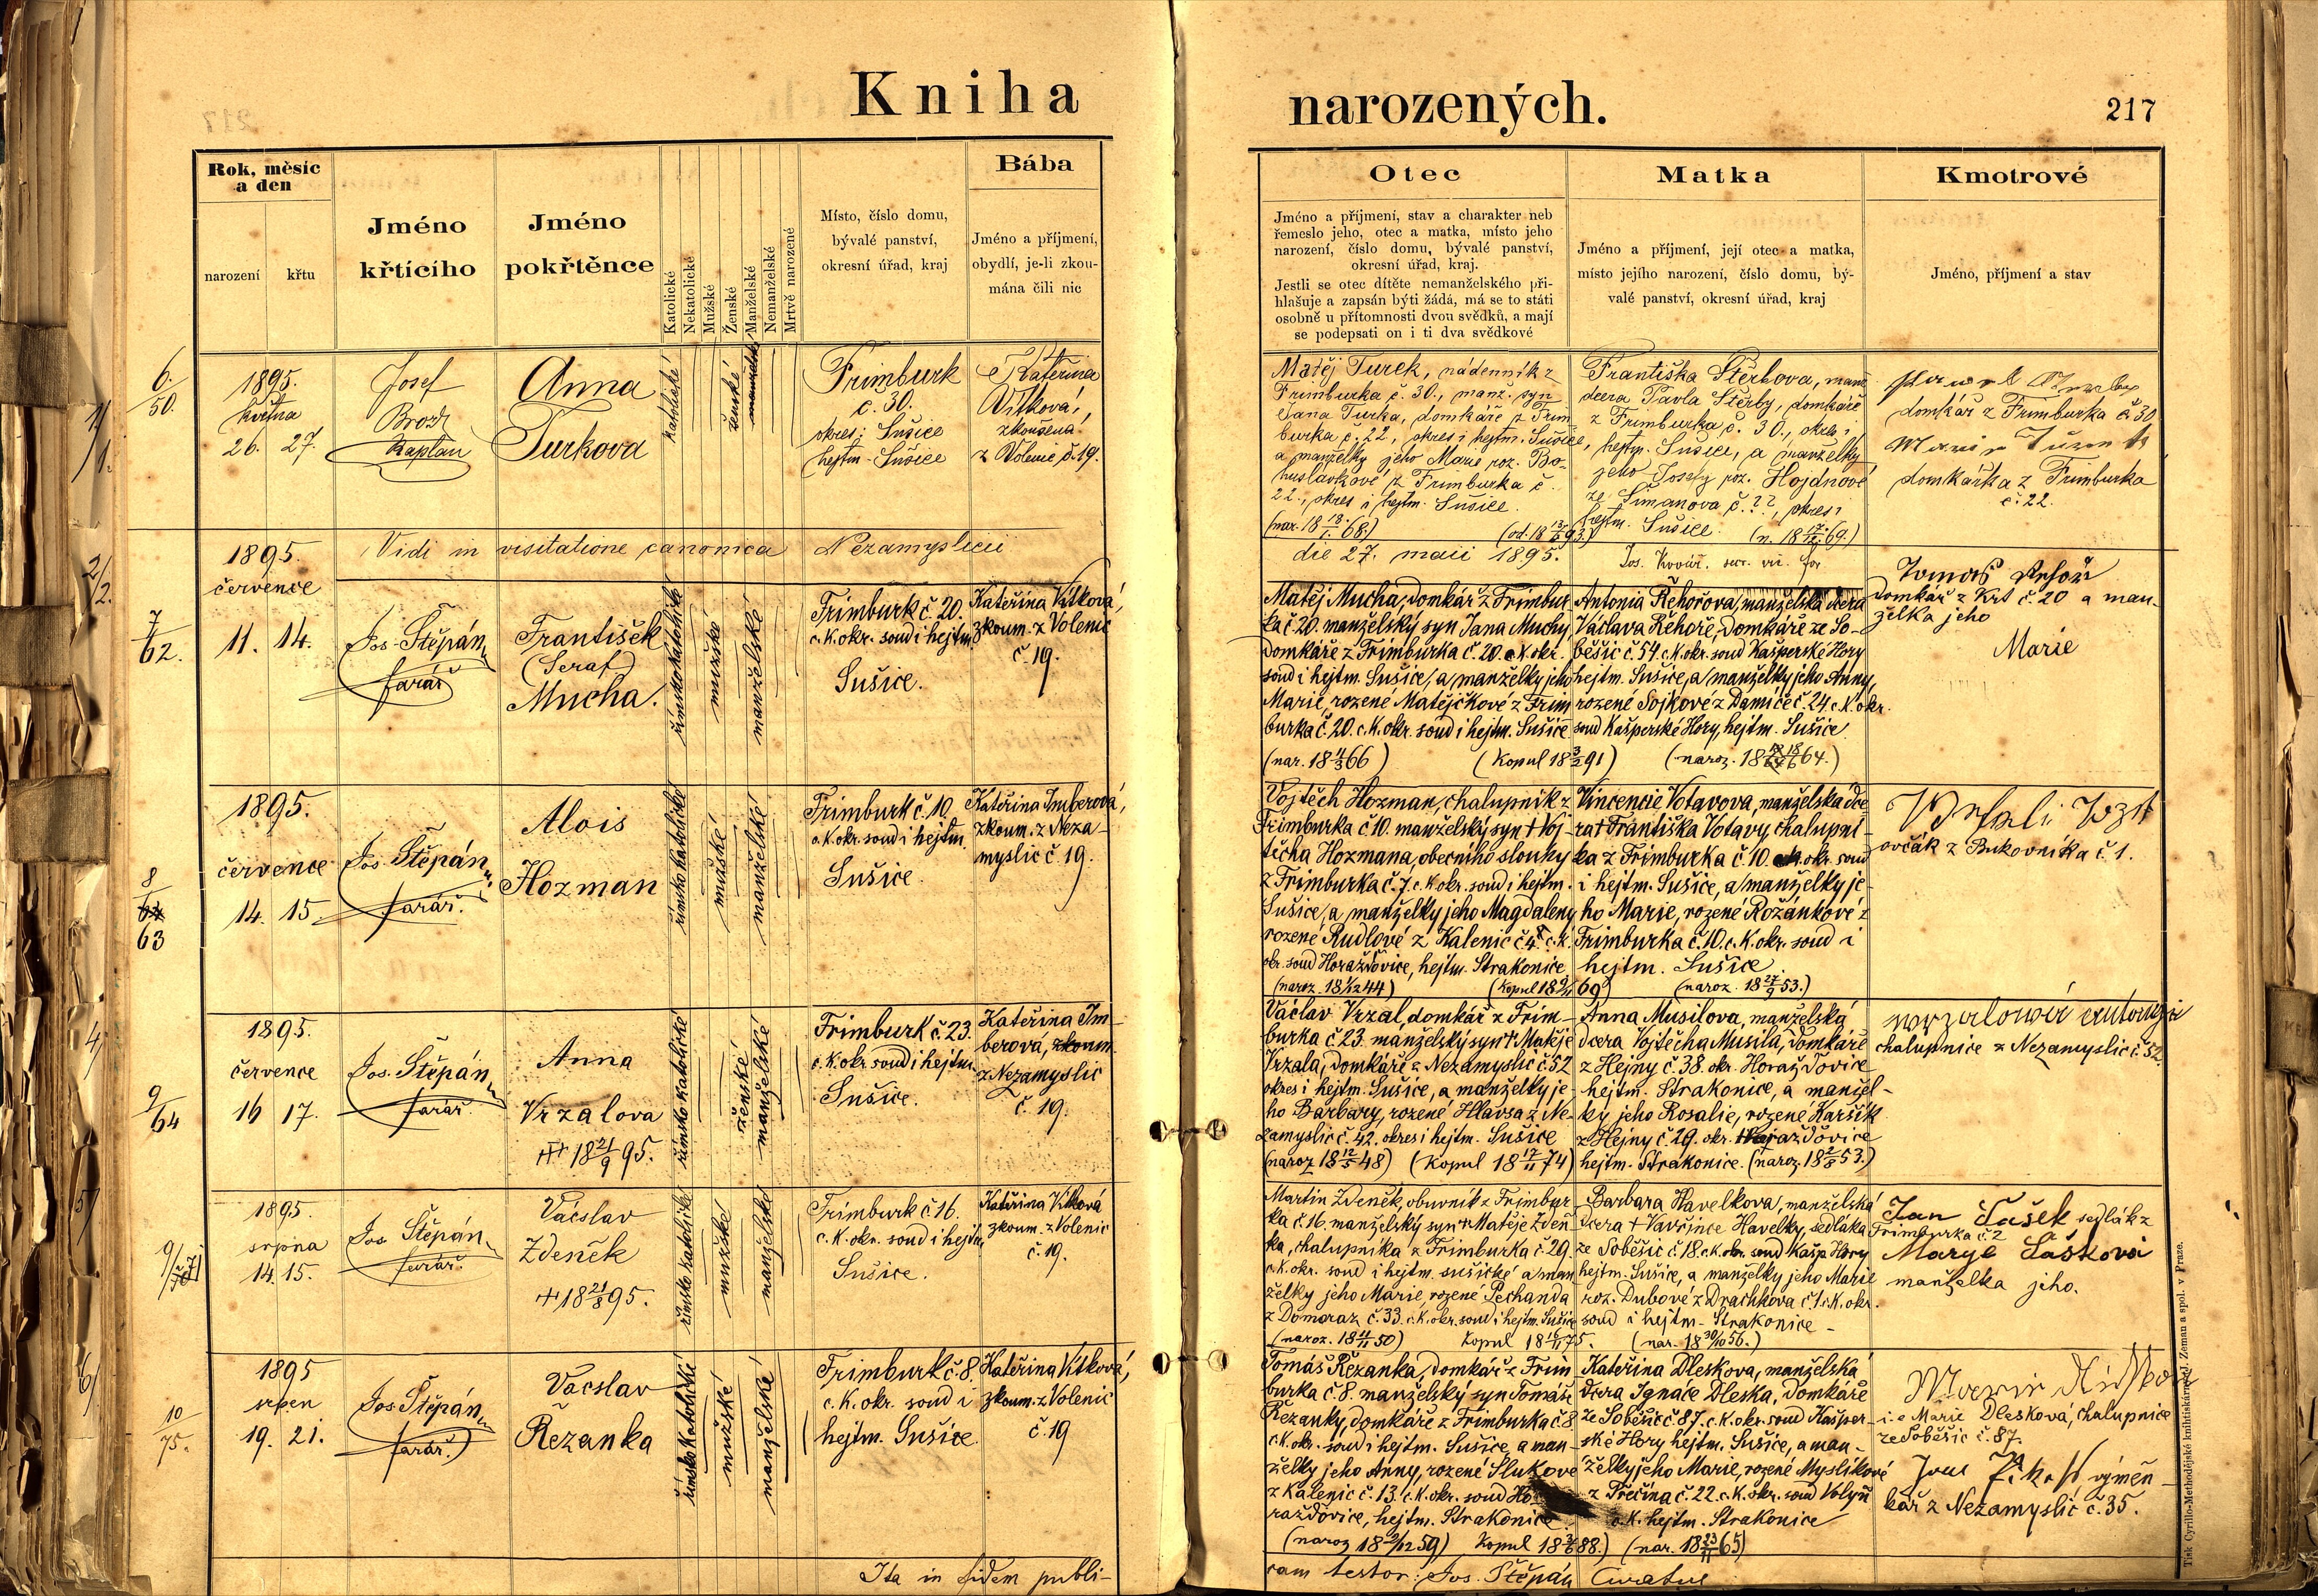 Kniha narozených.
217
Rok, měsíc
a den
narození
křtu
Jméno
křtícího
Jméno
pokřtěnce
Katolické
Nekatolické
Mužské
Ženské
Manželské
Nemanželské
Mrtvě narozené
Místo, číslo domu,
bývalé panství,
okresní úřad, kraj
Bába
Jméno a příjmení,
obydlí, je-li zkou-
mána čili nic
Otec
Jméno a příjmení, stav a charakter neb
řemeslo jeho, otec a matka, místo jeho
narození, číslo domu, bývalé panství,
okresní úřad, kraj.
Jestli se otec dítěte nemanželského při-
hlašuje a zapsán býti žádá, má se to státi
osobně u přítomnosti dvou svědků, a mají
se podepsati on i ti dva svědkové
Matka
Jméno a příjmení, její otec a matka,
místo jejího narození, číslo domu, bý-
valé panství, okresní úřad, kraj
Kmotrové
Jméno, příjmení a stav
6.
50.
1895.
května
26. 27.
Josef
Brož
Kaplan
Anna
Turkova
katolické
ženské
manželské
Frimburk
č. 30.
okres: Sušice
hejtm. Sušice
Kateřina
Vítková,
zkoušena
z Volenic č. 19.
Matěj Turek, nádenník z
Frimburka č. 30., manž. syn
Jana Turka, domkáře z Frim
burka č. 22, okres i hejtm. Sušice,
a manželky jeho Marie roz. Bo-
huslavkové z Frimburka č.
22., okres i hejtm. Sušice.
Františka Štěrbova, manž.
dcera Pavla Štěrby, domkáře
z Frimburka č. 30., okres i
hejtm. Sušice, a manželky
jeho Josefy roz. Hojdnové
ze Šimanova č. ??, okres i
hejtm. Sušice.
domkář z Frimburka č. 30
domkářka z Frimburka
č. 22.
Vidi in visitatione canonica Nezamyslicii
die 27. maii 1895.
7
62.
1895.
července
11. 14.
Jos. Štěpán
farář
František
(Seraf)
Mucha.
římskokatolické
mužské
manželské
Frimburk č. 20.
c. k. okr. soud i hejtm.
Sušice.
Kateřina Vítková,
zkoum. z Volenic
č. 19.
Matěj Mucha, domkář z Frimbur-
ka č 20. manželský syn Jana Muchy
domkáře z Frimburka č. 20. c. k. okr.
soud i hejtm. Sušice, a manželky jeho
Marie, rozené Matějčkové z Frim
burka č. 20. c. k. okr. soud i hejtm. Sušice
(nar. 18 4/3 66) (Kopul 18 3/2 91)
Antonia Řehořova, manželská dcera
Václava Řehoře, domkáře ze So-
běšic č. 54 c. k. okr. soud Kašperské Hory
hejtm. Sušice, a manželky jeho Anny,
rozené Sojkové z Damíče č. 24 c. k. okr.
soud Kašperské Hory, hejtm. Sušice
domkář z Krt č. 20 a man-
želka jeho
Marie
8
63
1895.
července
14. 15.
Jos. Štěpán
farář.
Alois
Hozman
římsko katolické
mužské
manželské
Frimburk č. 10.
c. k. okr. soud i hejtm
Sušice.
Kateřina Imberová,
zkoum. z Neza-
myslic č. 19.
Vojtěch Hozman, chalupník z
Frimburka č 10. manželský syn † Voj-
těcha Hozmana, obecního slouhy
z Frimburka č. 7. c. k. okr. soud i hejtm.
Sušice, a manželky jeho Magdaleny
rozené Rudlové z Kalenic č 48. c. k.
okr. soud Horažďovice, hejtm. Strakonice
Vincencie Votavova, manželská dce
ra † Františka Votavy, chalupní-
ka z Frimburka č. 10. c. k. okr. soud
i hejtm. Sušice, a manželky je-
ho Marie, rozené Rožánkové z
Frimburka č. 10. c. k. okr. soud i
hejtm. Sušice.
(naroz. 18 27/9 53.)
ovčák z Bukovníka č 1.
9
64
1895.
července
16 17.
Jos. Štěpán
farář.
Anna
Vrzalova
18 21/9 95.
římsko katolické
ženské
manželské
Frimburk č. 23.
c. k. okr. soud i hejtm.
Sušice.
Kateřina Im-
berová, zkoum.
z Nezamyslic
č. 19.
Václav Vrzal, domkář z Frim-
burka č. 23. manželský syn † Matěje
Vrzala, domkáře z Nezamyslic č. 52
okres i hejtm. Sušice, a manželky je-
ho Barbary, rozené Hlavsa z Ne-
zamyslic č. 42. okres i hejtm. Sušice
(naroz 18 12/5 48) (Kopul 18 17/11 74)
Anna Musilova, manželská
dcera Vojtěcha Musila, domkáře
z Hejny č. 38. okr. Horažďovice
hejtm. Strakonice, a manžel-
ky jeho Rosalie, rozené Karšík
z Hejny č. 29. okr. Horažďovice
hejtm. Strakonice. (naroz. 18 2/8 53.)
chalupnice z Nezamyslic č. 52.
1895.
srpna
14. 15.
Jos. Štěpán
farář.
Václav
Zdeněk
18 21/8 95.
římsko katolické
mužské
manželské
Frimburk č 16.
c. k. okr. soud i hejtm
Sušice.
Kateřina Vítková
zkoum. z Volenic
č. 19.
Martin Zdeněk, obuvník z Frimbur-
ka č. 16. manželský syn † Matěje Zdeň-
ka, chalupníka z Frimburka č. 29.
c. k. okr. soud i hejtm. sušické a man
želky jeho Marie, rozené Pechanda
z Domoraz č. 33. c. k. okr. soud i hejtm. Sušice
Kopul 18 16/11 75.
Barbara Havelkova, manželská
dcera † Vavřince Havelky, sedláka
ze Soběšic č. 18. c. k. okr. soud Kašp. Hory
hejtm. Sušice, a manželky jeho Marie
roz. Dubové z Drachkova č 1. c. k. okr.
soud i hejtm. Strakonice
(nar. 18 30/10 56.)
Jan Šašek sedlák z
Frimburka č. 2
Marye Šašková
manželka jeho.
10
75.
1895
srpen
19. 21.
Jos. Štěpán
farář.
Václav
Řezanka
římsko katolické
mužské
manželské
Frimburk č. 8.
c. k. okr. soud i
hejtm. Sušice
Kateřina Vítková,
zkoum. z Volenic
č. 19
Tomáš Řezanka, domkář z Frim-
burka č. 8. manželský syn Tomáše
Řezanky, domkáře z Frimburka č 8
c. k. okr. soud i hejtm. Sušice, a man-
želky jeho Anny, rozené Slukové
z Kalenic č. 13. c. k. okr. soud Ho
ražďovice, hejtm. Strakonice.
Kateřina Dleskova, manželská
dcera Ignáce Dleska, domkáře
ze Soběšic č 87. c. k. okr. soud Kašper-
ské Hory hejtm. Sušice, a man-
želky jeho Marie, rozené Myslíkové
z Přečína č. 22. c. k. okr. soud Volyň
c. k. hejtm. Strakonice
(nar. 18 23/11 65)
i. e Marie Dlesková, chalupnice
ze Soběšic č. 87.
výměn-
kář z Nezamyslic č. 35.
Ita in fidem publi-
cam testor: Jos. Štěpán Curatus
Tisk Cyrillo-Methodějské knihtiskárny J. Zeman a spol. v Praze.